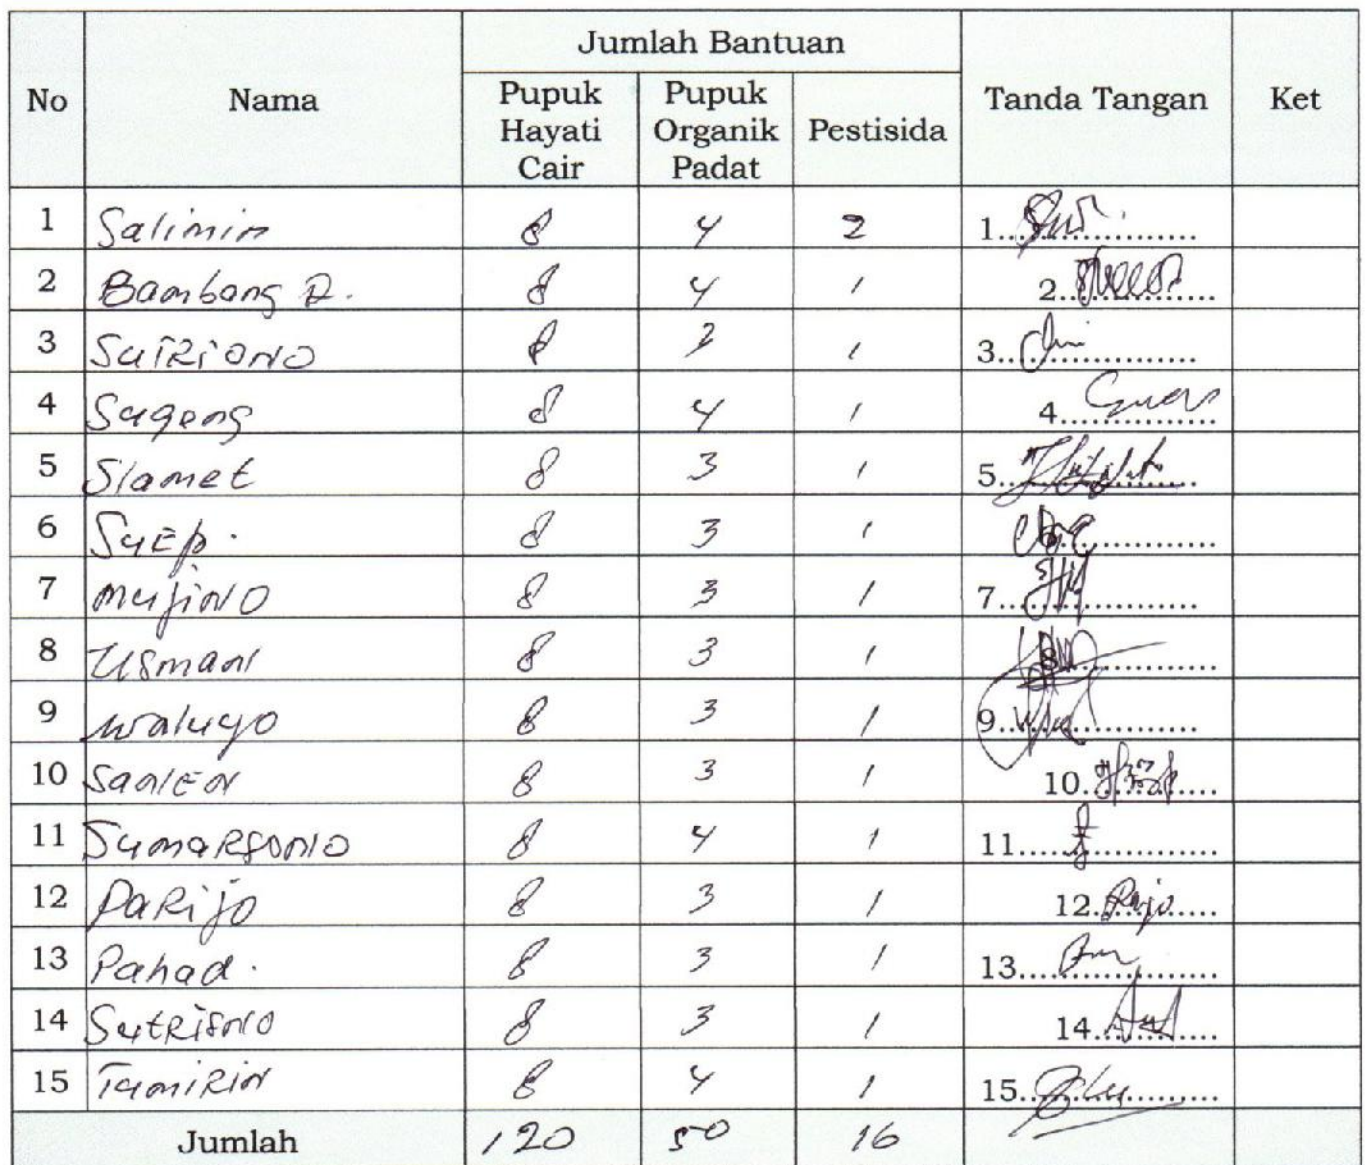 Jumlah Bantuan
No Nama Pupuk Hayati Cair Pupuk Organik Padat Pestisida Tanda Tangan Ket
1 Salimin 8 4 2 1...
2 Bambang R. 8 4 1 2...
3 SutRiONO 8 2 1 3...
4 Sugeng 8 4 1 4...
5 Slamet 8 3 1 5...
6 SuEp. 8 3 1
7 mujiNO 8 3 1 7...
8 USmaN 8 3 1 8...
9 waluyo 8 3 1 9...
10 SaNEN 8 3 1 10...
11 SumaRSONO 8 4 1 11...
12 PaRijo 8 3 1 12. Parjo
13 Pahad. 8 3 1 13...
14 SutRiSNO 8 3 1 14...
15 TamiRiN 8 4 1 15...
Jumlah 120 50 16